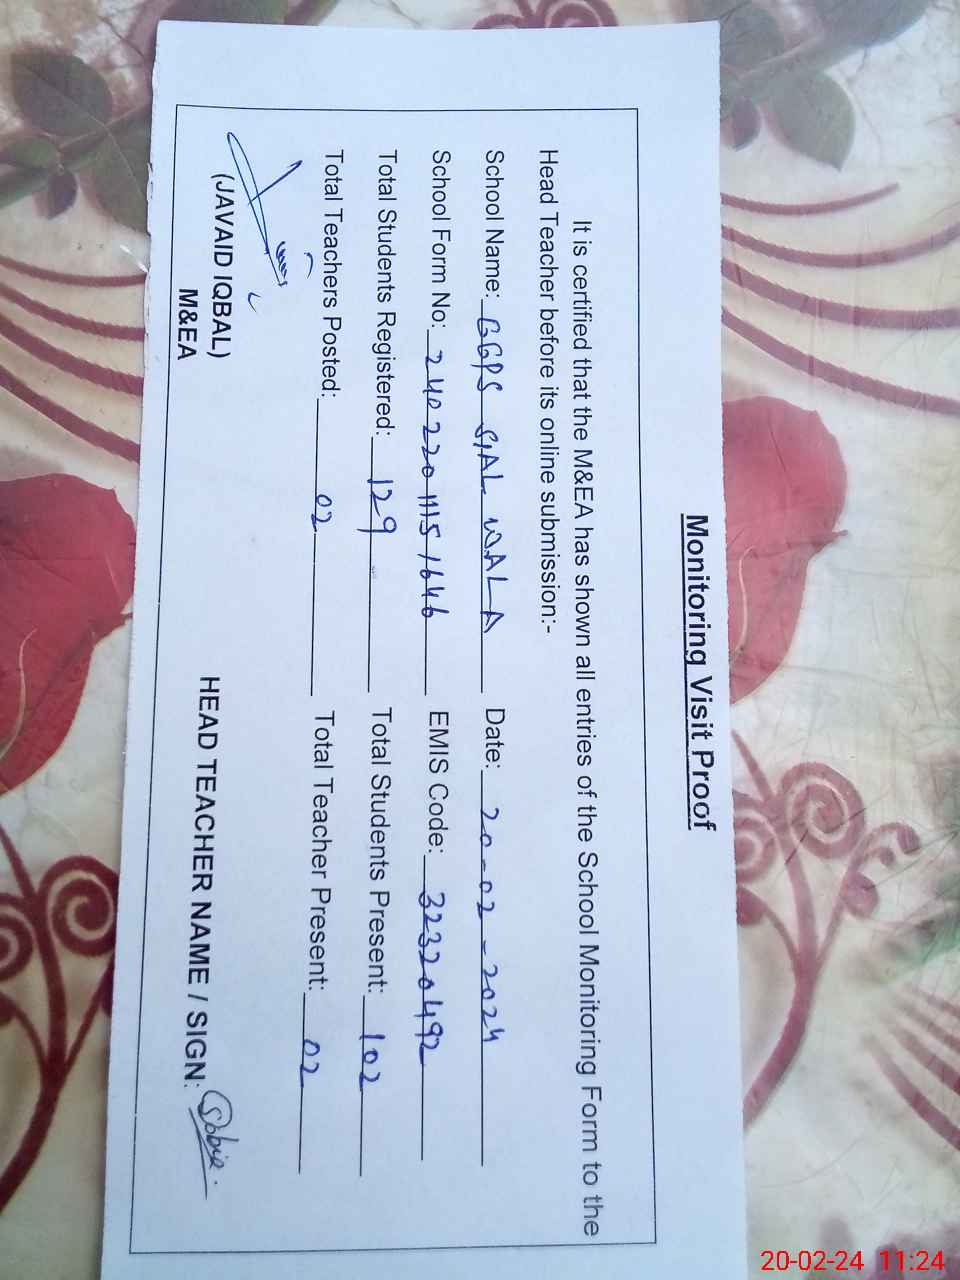 Monitoring Visit Proof
It is certified that the M&EA has shown all entries of the School Monitoring Form to the
Head Teacher before its online submission:-
School Name: GGPS SIAL WALA Date: 20-02-2024
School Form No: 24022011151646 EMIS Code: 32320492
Total Students Registered: 129 Total Students Present: 102
Total Teachers Posted: 02 Total Teacher Present: 02
(JAVAID IQBAL)
M&EA
HEAD TEACHER NAME / SIGN: Sobia
20-02-24 11:24